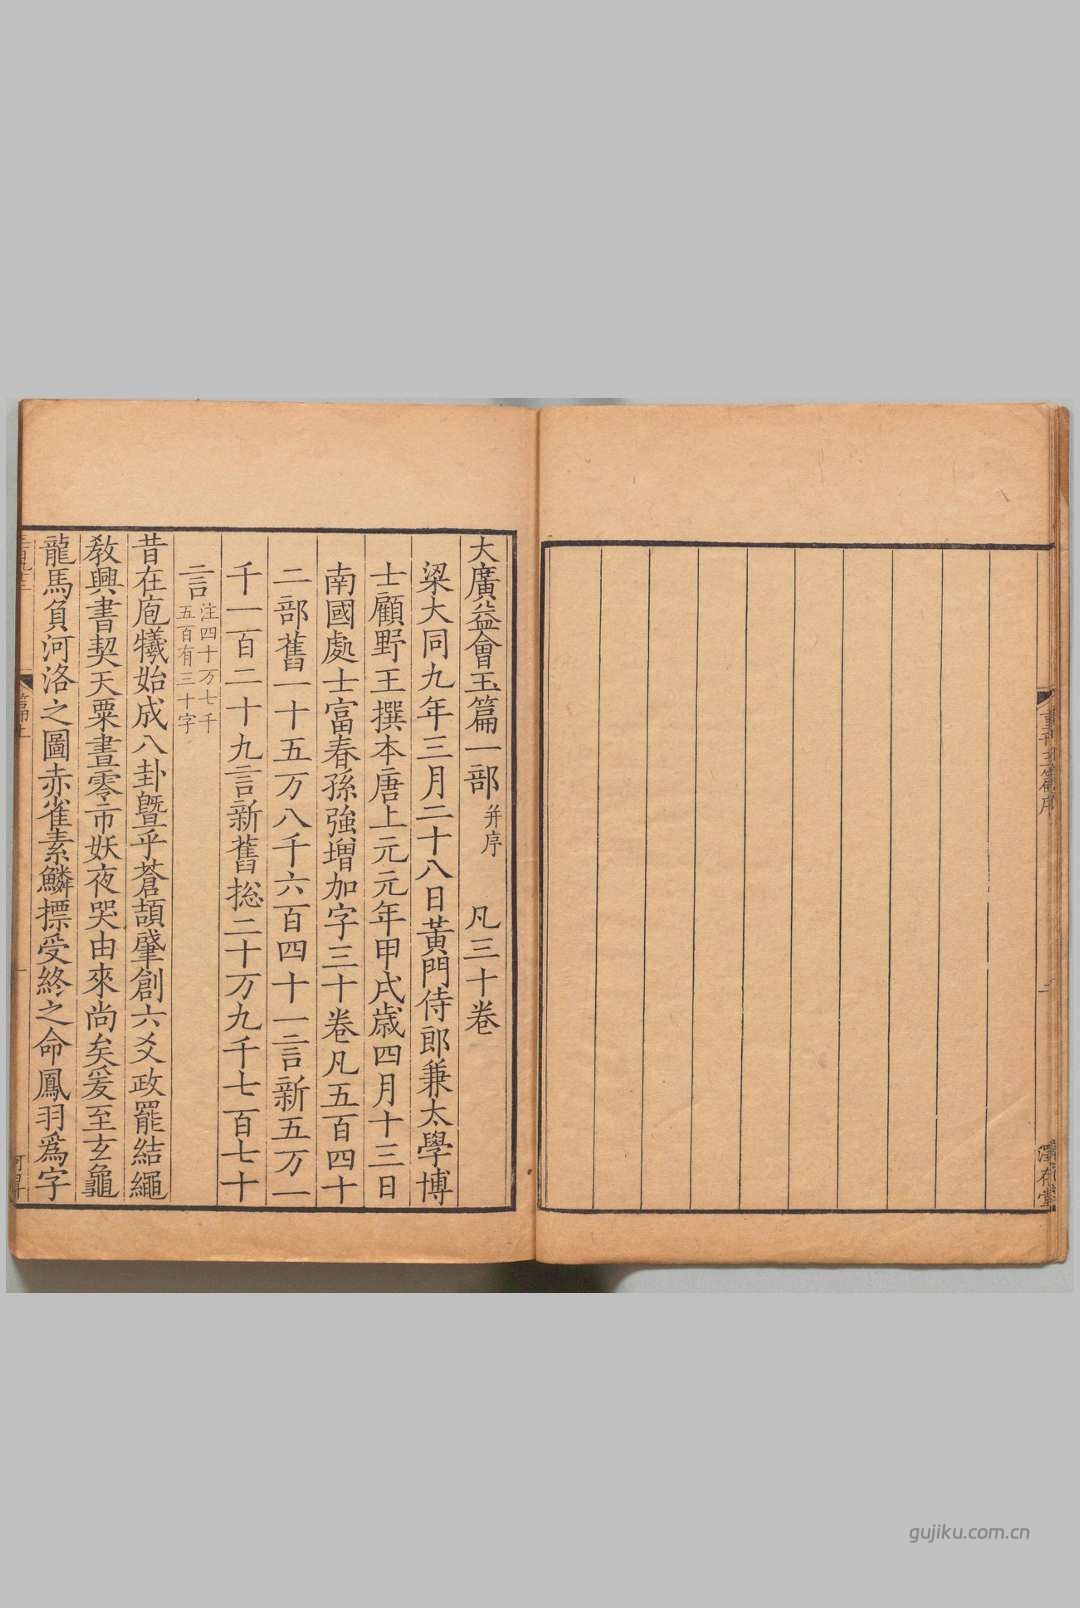 重刊玉篇序
澤存堂
大廣益會玉篇一部并序 凡三十卷
梁大同九年三月二十八日黃門侍郎兼太學博
士顧野王撰本唐上元元年甲戌歲四月十三日
南國處士富春孫強增加字三十卷凡五百四十
二部舊一十五万八千六百四十一言新五万一
千一百二十九言新舊揔二十万九千七百七十
言注四十万七千
五百有三十字
昔在庖犧始成八卦暨乎蒼頡肇創六爻政罷結繩
敎興書契天粟晝零市妖夜哭由來尚矣爰至玄龜
龍馬負河洛之圖赤雀素鱗摽受終之命鳳羽爲字
gujiku.com.cn